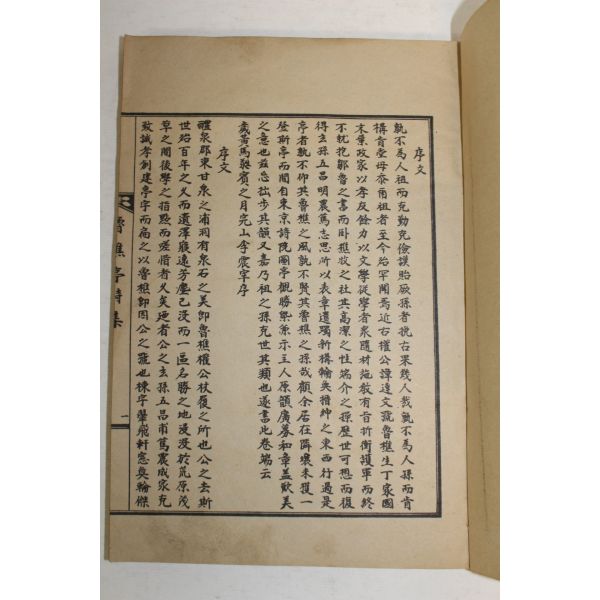 序文
孰不爲人祖而克勤克儉謨貽厥孫者挽右果幾人哉孰不爲人孫而肯
構肯堂毋忝甭祖者至今殆罕聞焉近右權公譚達文號魯樵生丁家國
末葉政家以孝友餘力以文學從學者衆隨材施教有旨折衡護軍而終
不枕抱鄒魯之書而卧樵牧之社其高潔之性端介之操歷世可想而復
得玄孫五昌明農篤志思所以表章遺躅新構輪奐搢紳之東西行過是
亭者孰不仰共魯樵之風孰不賢其魯樵之孫哉顧余居在隣壤未獲一
登斯亭而聞有東京詩院團亭觀勝槩示主人原韻廣募和章蓋歎美
之意也玆忘拙步其韻又嘉乃祖之孫克世其類也遂書此卷端云
歲黃馬蕤賓之月完山李震宰序
序文
醴泉郡東甘泉之浦洞有泉石之美卽魯樵權公杖屨之所也公之去斯
世殆百年之久而遺澤寢遠芳塵已沒而一區名勝之地漫沒於荒原茂
草之間後學之指點而嗟惜者久矣迺者公之玄孫五昌甫篤農成家克
致誠孝創建亭宇而扁之以魯樵卽因公之號也棟宇翬飛軒窓奐輪傑
魯樵亭詩集
一